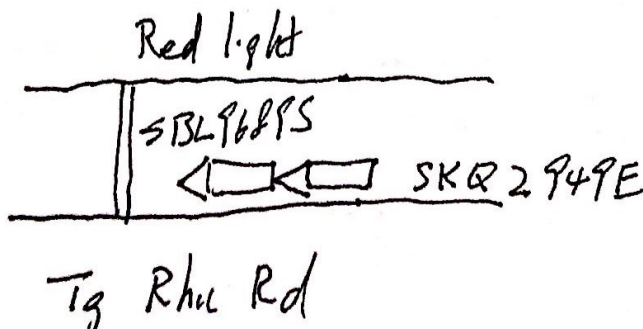 Red light
SBL9689S
SKQ2949E
Tg Rhu Rd